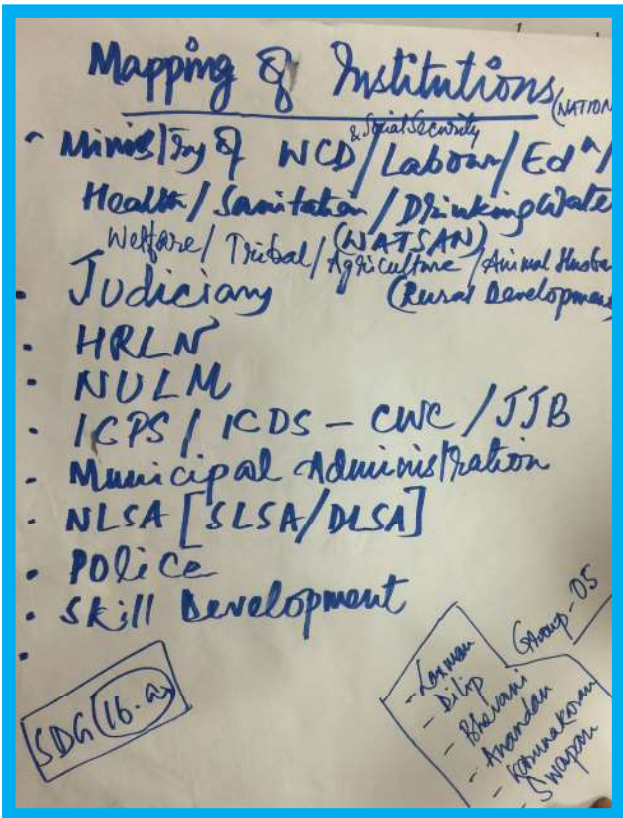 Mapping of Institutions (NATION
& Social Security
- Ministry of WCD/Labour/Edn/
Health/Sanitation/Drinking Wate
(WATSAN)
Welfare/Tribal/Agriculture/Animal Husba
• Judiciary (Rural Developmen
• HRLN
• NULM
• ICPS/ICDS - CWC/JJB
• Municipal Administration
• NLSA [SLSA/DLSA]
• Police
• Skill Development
•
SDG 16.a
Group-05
- Laxman
- Dilip
- Bhavani
- Anandan
- Karunakaran
- Swapan